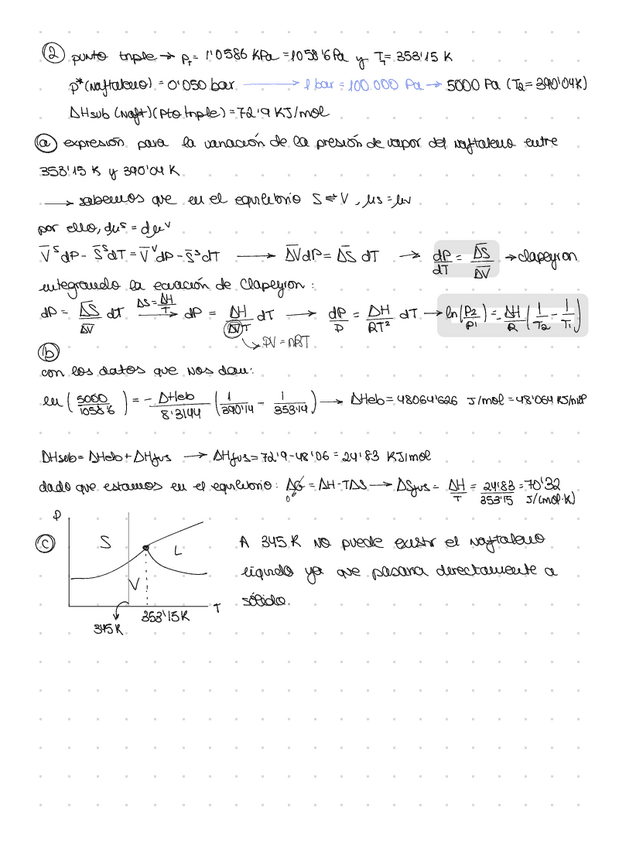 ② punto triple → Pt = 1'0586 KPa = 1058'6 Pa y Tt = 353'15 K
P*(naftaleno) = 0'050 bar → 1 bar = 100.000 Pa → 5000 Pa (T2 = 390'04K)
ΔHsub (naft)(Pto triple) = 72'9 KJ/mol
ⓐ expresión para la variación de la presión de vapor del naftaleno entre
353'15 K y 390'04 K.
→ sabemos que en el equilibrio S ⇌ V, μs = μv
por ello, dμˢ = dμᵛ
V̅ˢdP - S̅ˢdT = V̅ᵛdP - S̅ᵛdT → Δ̅V̅dP = Δ̅S̅ dT → dP/dT = ΔS̅/ΔV̅ → clapeyron
integrando la ecuación de Clapeyron:
dP = ΔS̅/ΔV̅ dT ΔS = ΔH/T → dP = ΔH/ΔVT dT → dP/P = ΔH/RT² dT → ln(P2/P1) = -ΔH/R (1/T2 - 1/T1)
PV = nRT
ⓑ
con los datos que nos dan:
ln (5000/1058'6) = - ΔHeb/8'3144 (1/390'14 - 1/353'14) → ΔHeb = 48064'626 J/mol = 48'064 KJ/mol
ΔHsub = ΔHeb + ΔHfus → ΔHfus = 72'9 - 48'06 = 24'83 KJ/mol
dado que estamos en el equilibrio: ΔG = ΔH - TΔS → ΔSfus = ΔH/T = 24'83/353'15 = 70'32 J/(mol·K)
0
ⓒ
P
S
L
V
T
345K
353'15K
A 345 K no puede existir el naftaleno
líquido ya que pasaría directamente a
sólido.